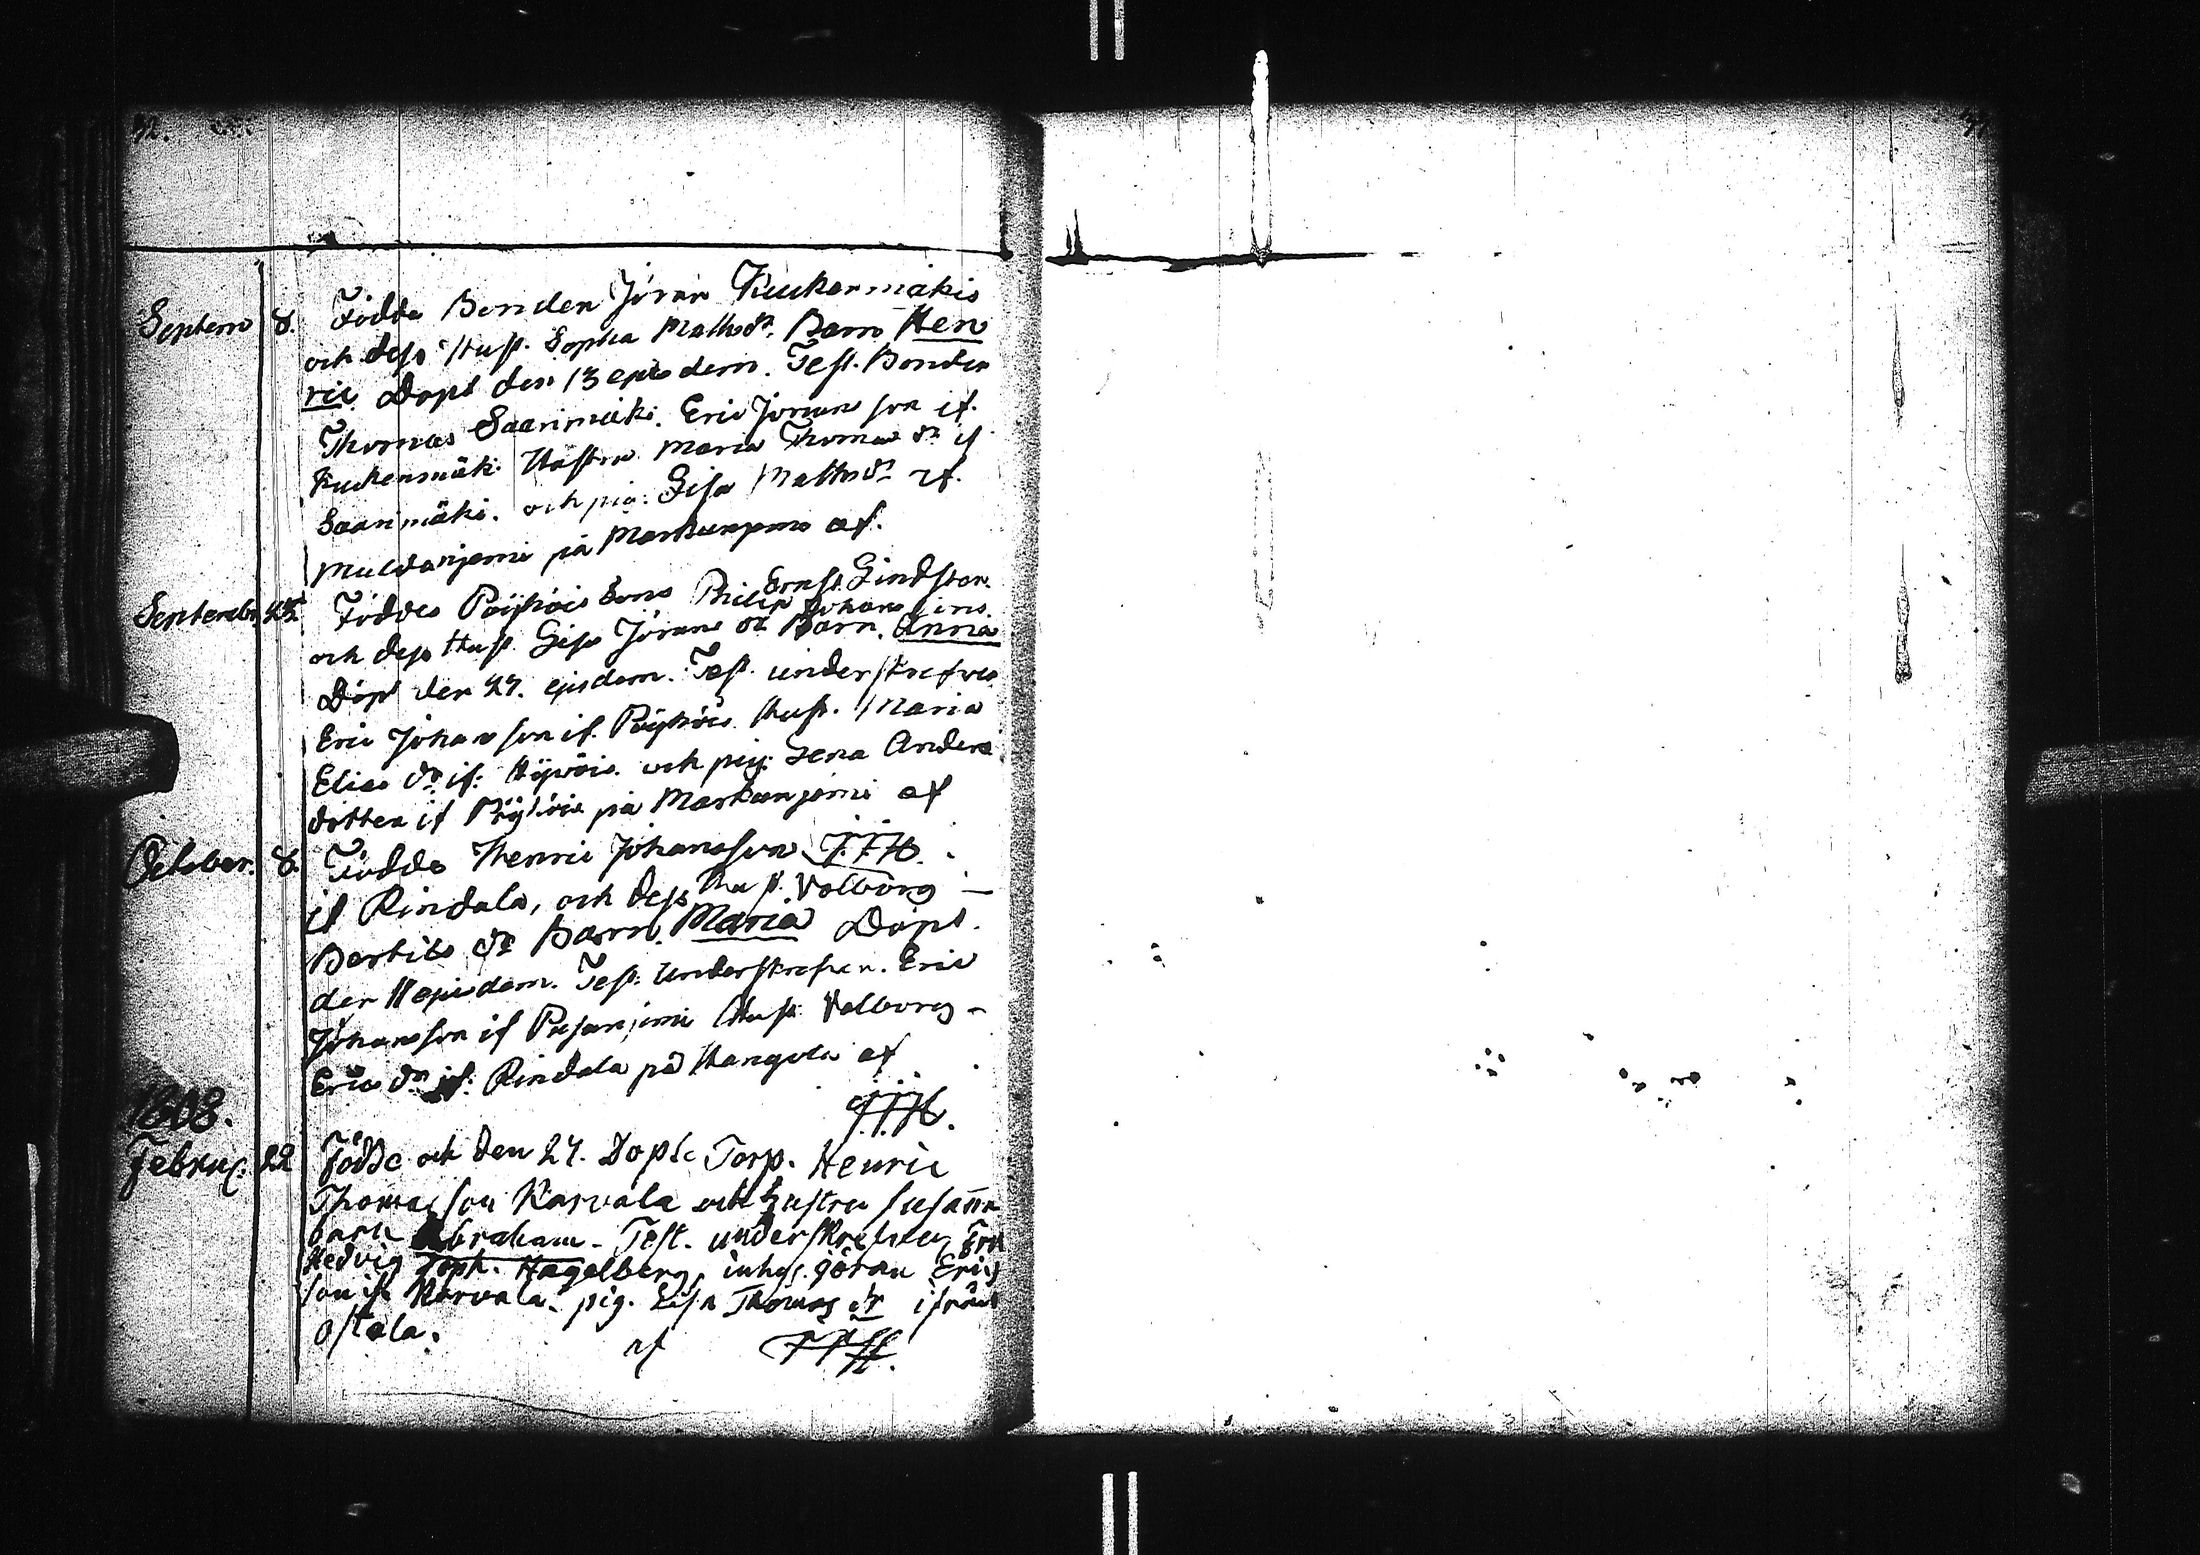 32.
Septem 8. Födde Bonden Jöran Kuckermäkis
och dess Hust. Sopha Matts dr. Barn Hen
ric Döpt den 13 ejusdem. Test. Bonden
Thomas Saarimäki. Eric Jöranson if.
Kuckenmäki Hustru Maria Thomas dr if
Saarimäki. och pig. Lisa Matts dr if.
på af.
Septembr Föddes Pöyhöis Sons Philip Johansons
Ernst Lindsten.
och dess Hust. Lisa Jörans dr Barn. Anna
Döpt den 27. ejusdem. Test. underskrefne
Eric Johanson if. Pöyhöis Hust. Maria
Elias dr if: och pig. Lena Anders
dotter if Pöyhöis på Markunjemi af
October. 8. Födde Henric Johansson J.F.H.
if Rindala, och dess Hust. Valborg —
Bertils dr Barn. Maria Döpt.
den 11 ejusdem. Test. Underskrefven. Eric
Johansson if Hust. Valborg —
Erics dr if: Rindala på Kangola af
J.F.H.
1808.
Februs. 22 Födde och den 24. Döpte Torp. Henric
Thomasson Karvala och hustru Susanna
barn Abraham. Test. underskrefven, Fru
Hedvig Soph. Hagelberg, inhys. Göran Erics
son if. Karvala. pig. Lisa Thomas dr ifrån
Ostola. af